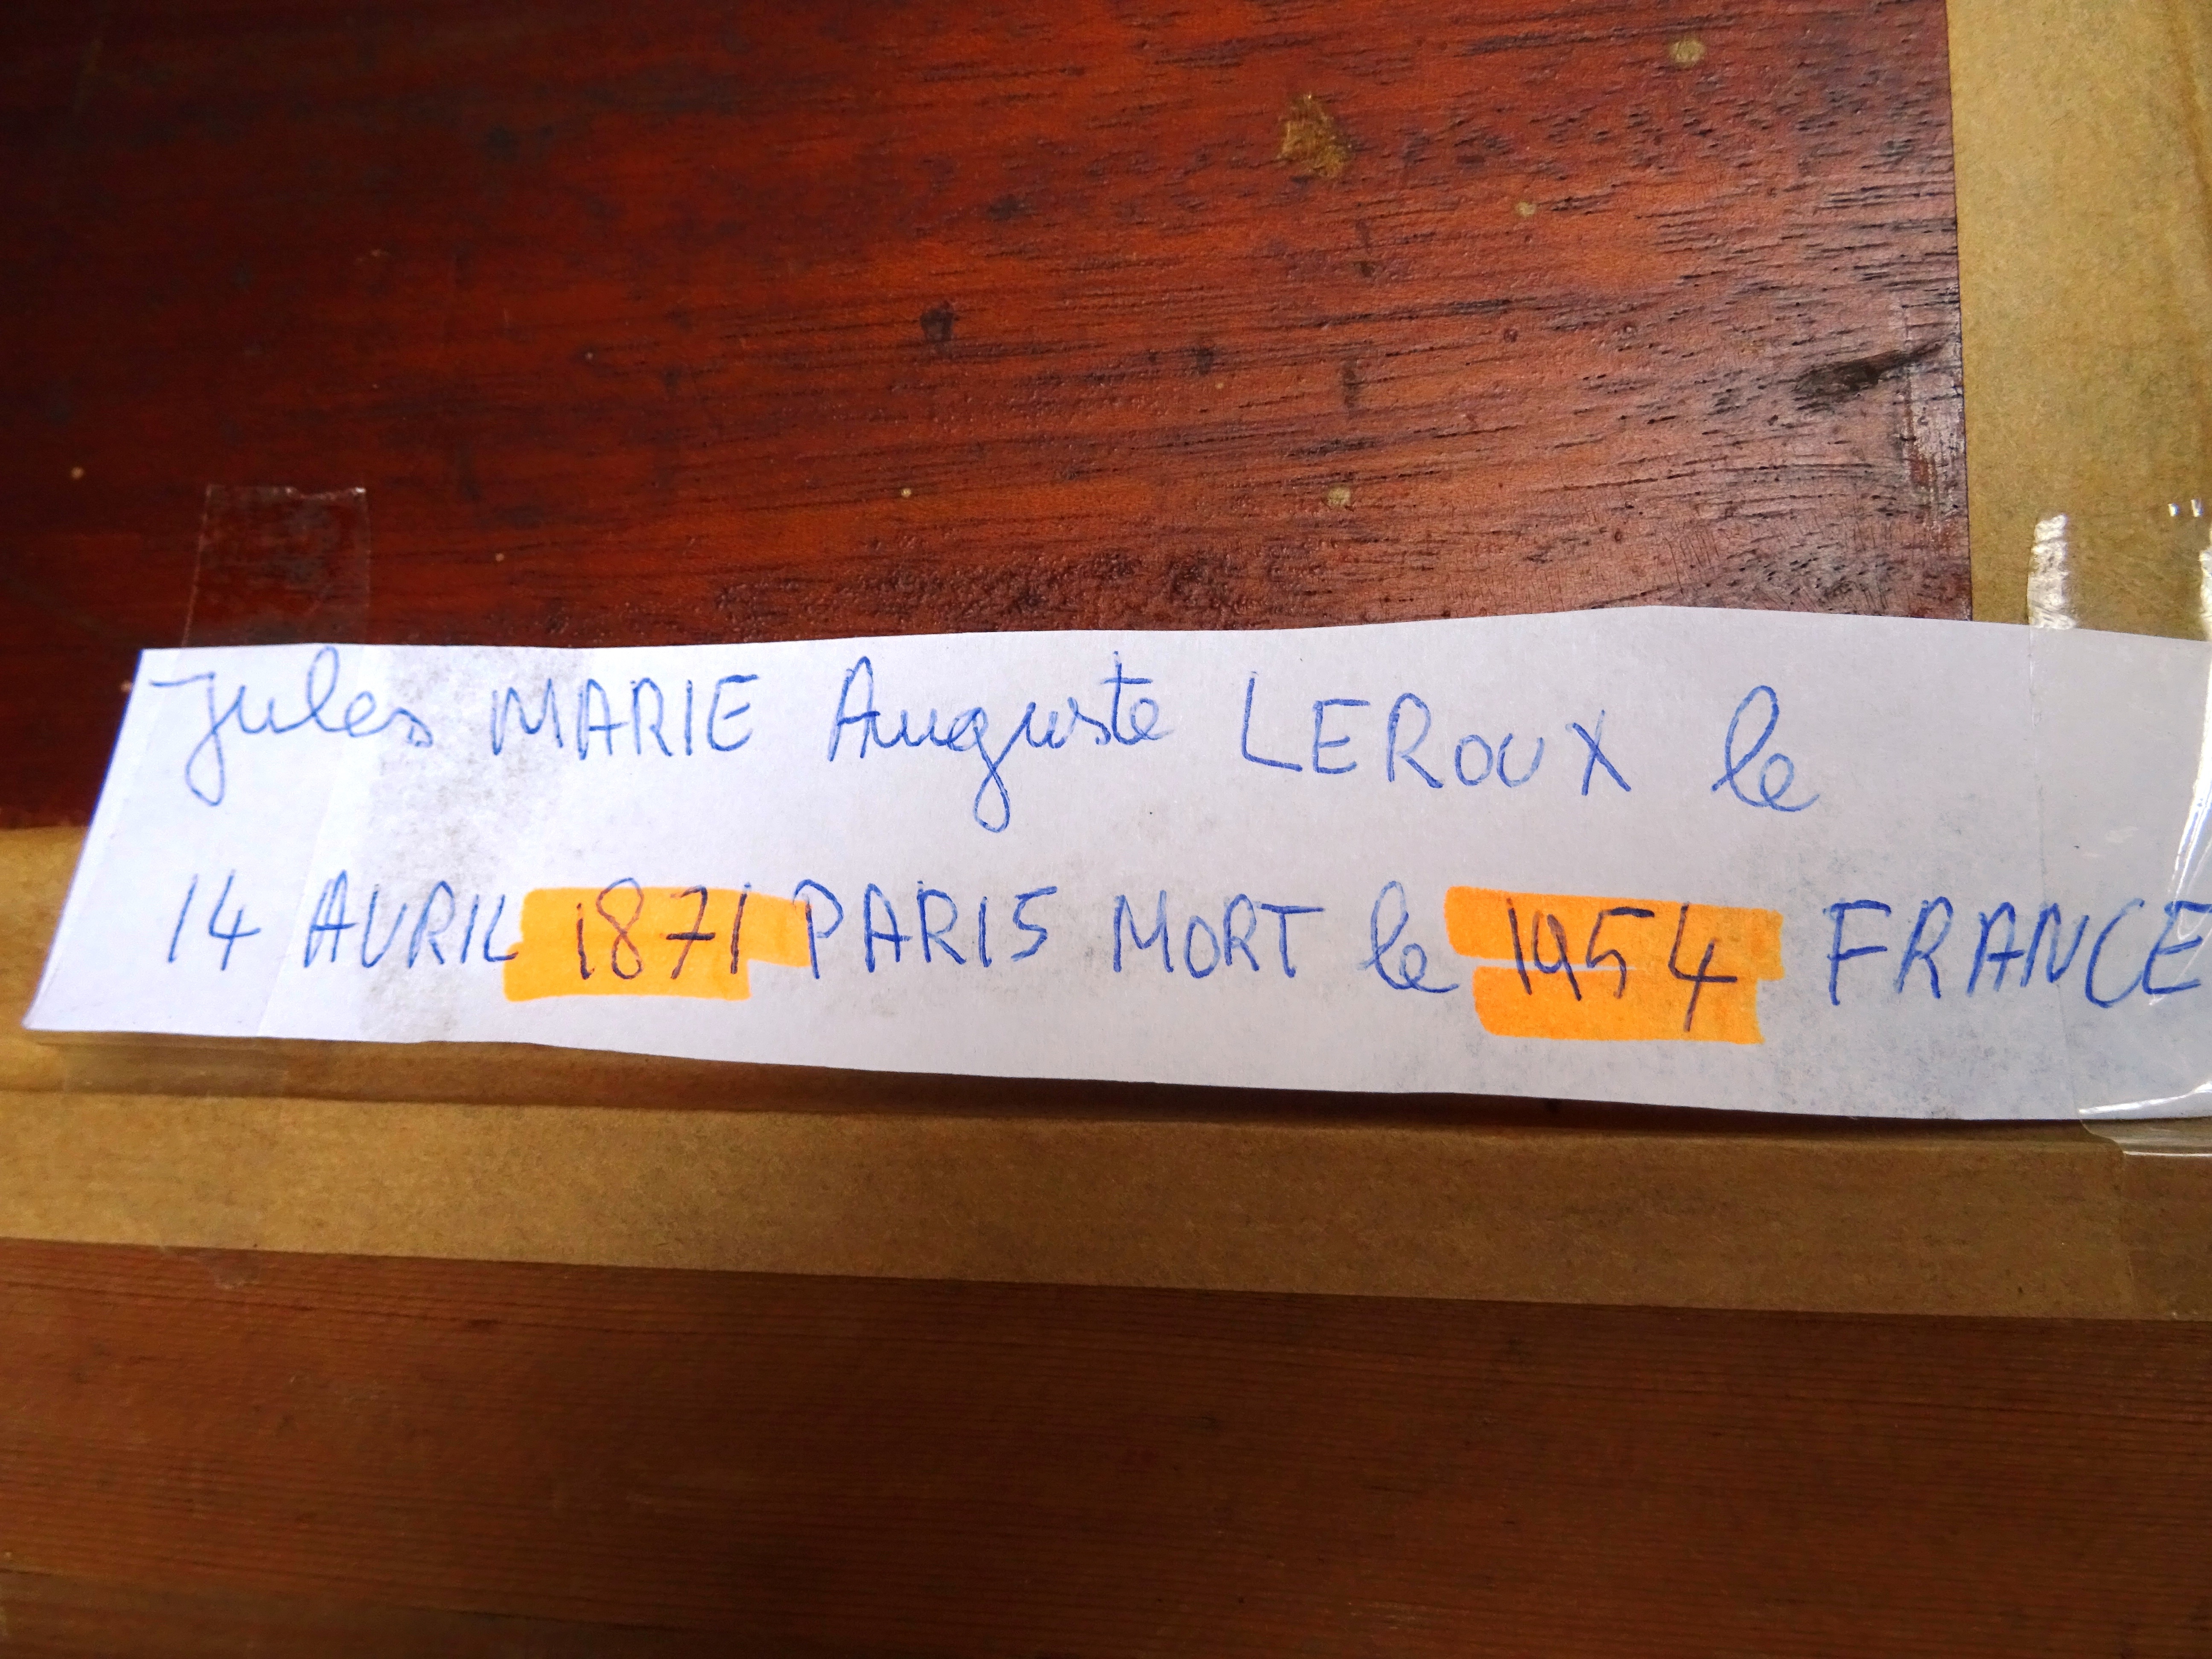 Jules MARIE Auguste LEROUX le
14 AVRIL 1871 PARIS MORT le 1954 FRANCE